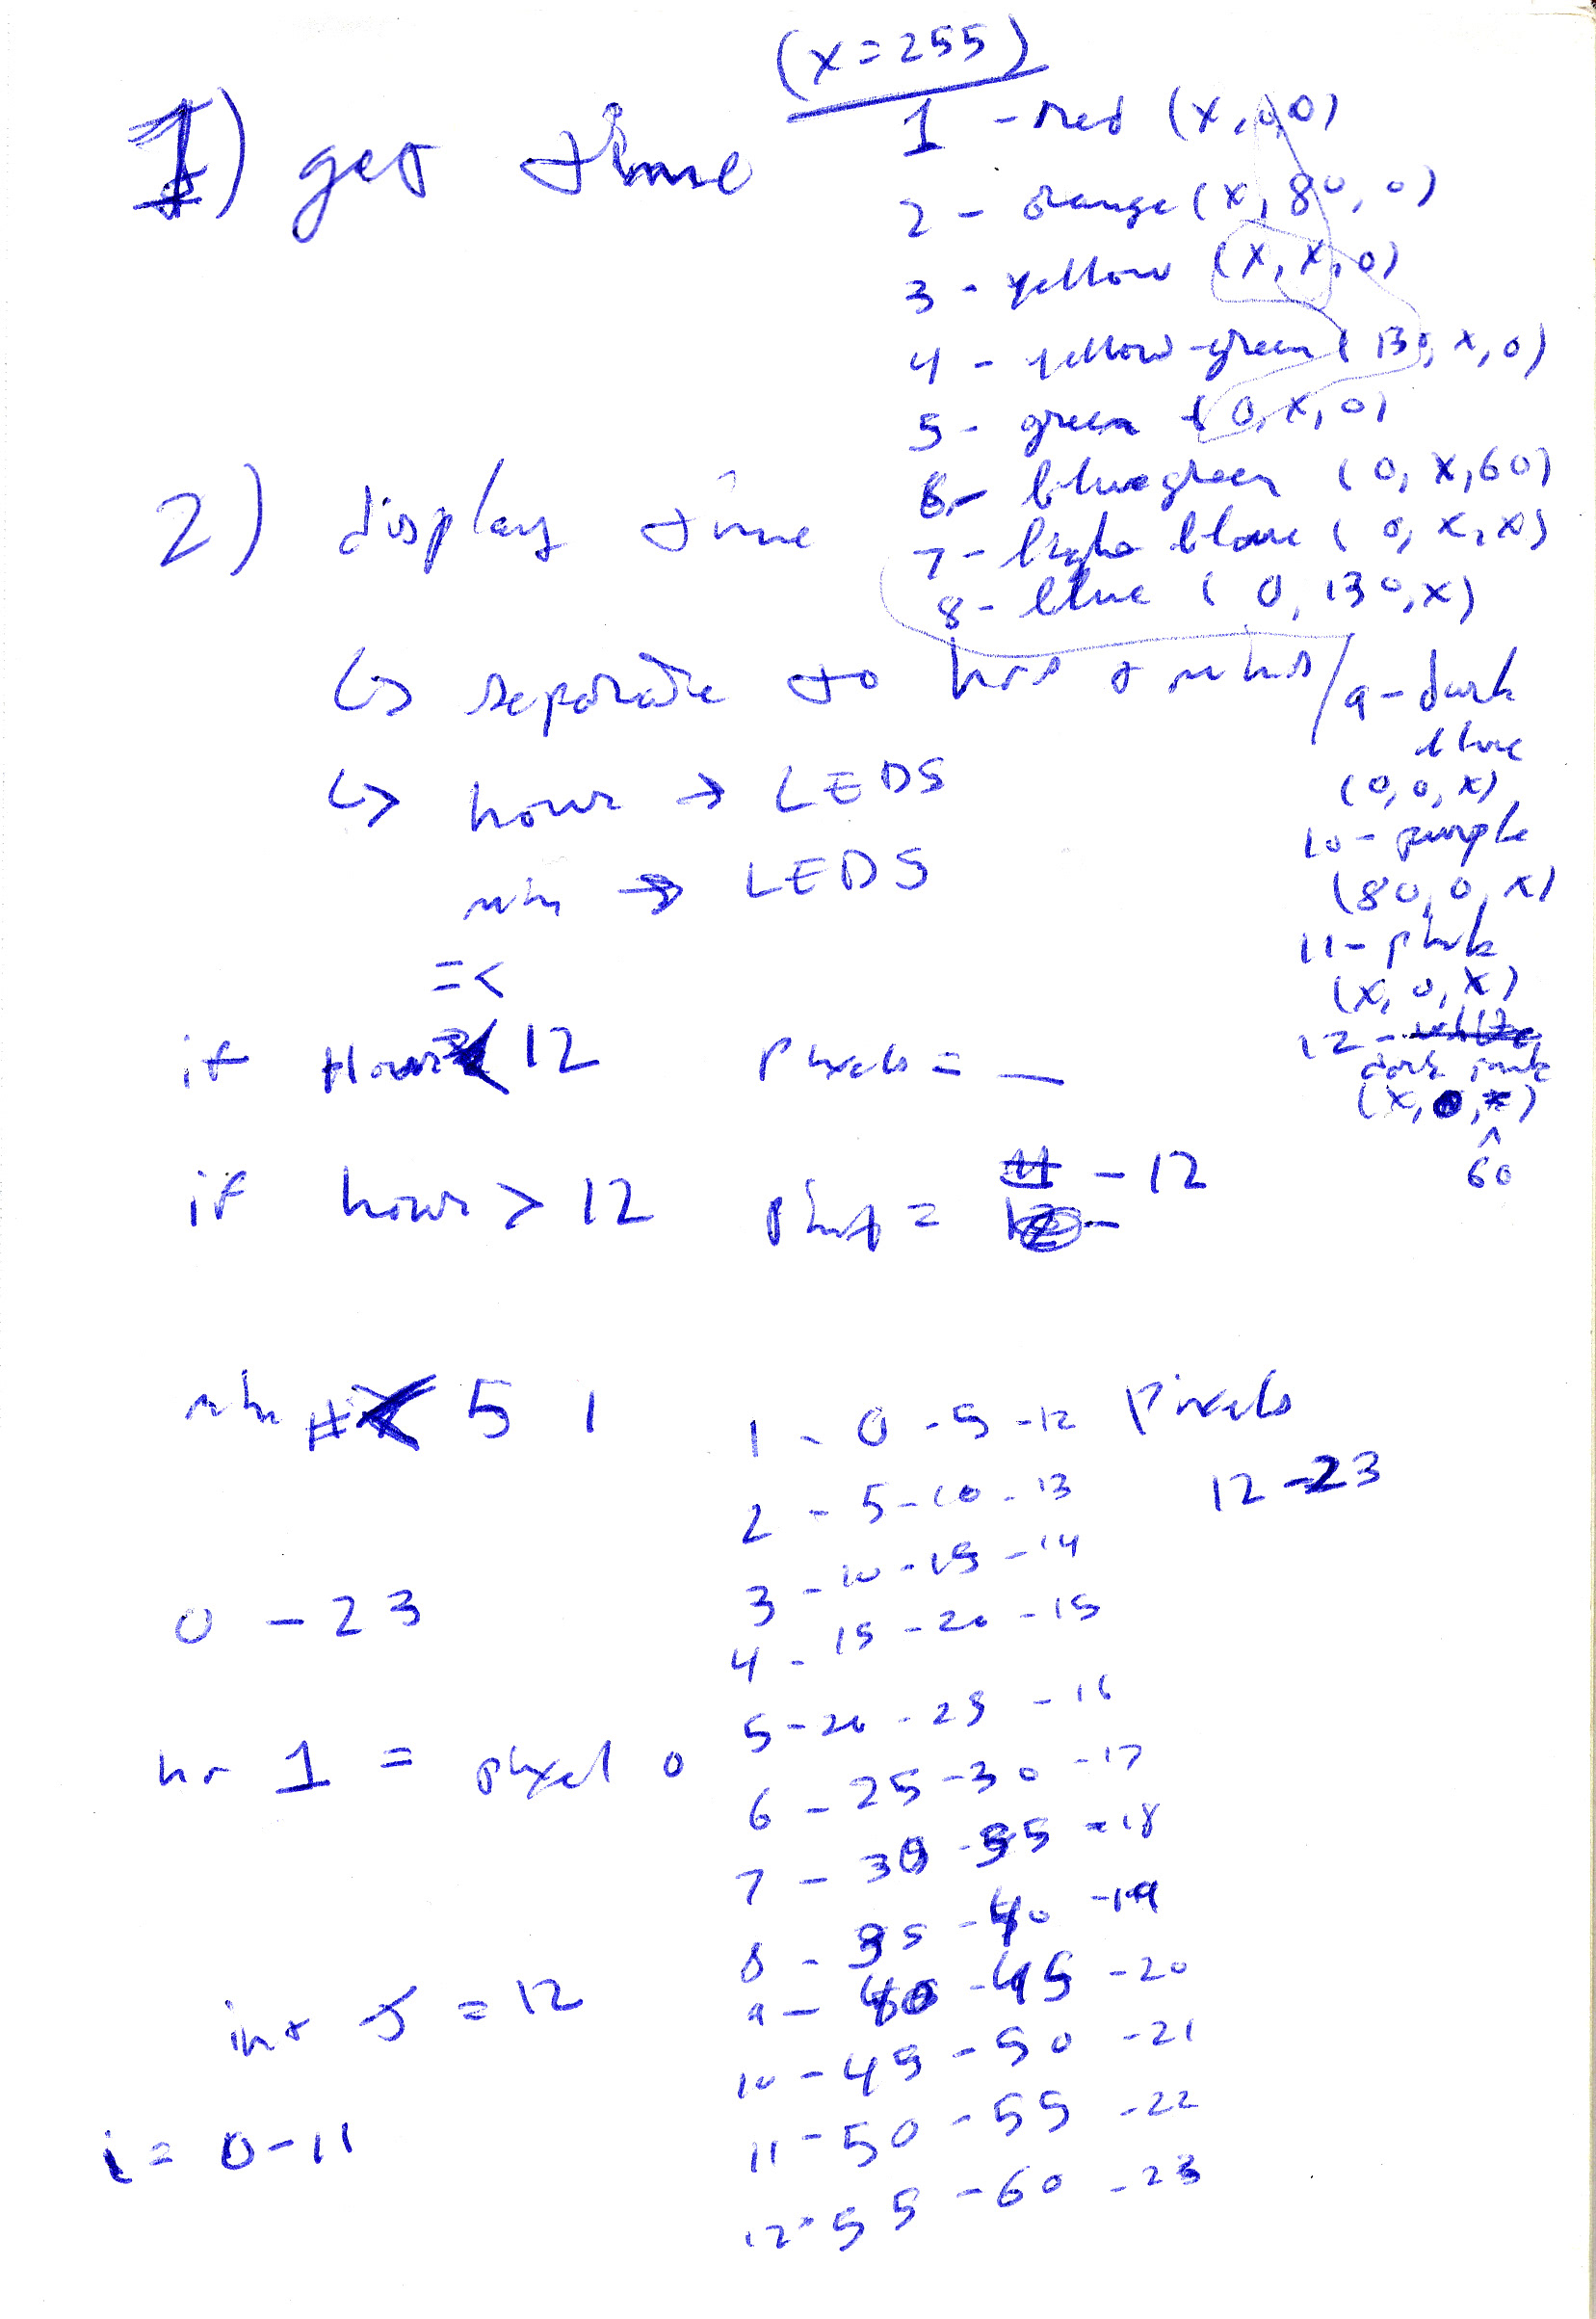 (x=255)
1) get time
1 - red (x,0,0)
2 - orange (x, 80, 0)
3 - yellow (x, x, 0)
4 - yellow-green (130, x, 0)
5 - green (0, x, 0)
6 - bluegreen (0, x, 60)
7 - light blue (0, x, x)
8 - blue (0, 130, x)
9 - dark
blue
(0, 0, x)
10 - purple
(80, 0, x)
11 - pink
(x, 0, x)
12 - white
dark pink
(x, 0, x)
^
60
2) display time
↳ separate to hrs & mins
↳ hour → LEDS
min → LEDS
=<
if Hour < 12 pixels = __
if hour > 12 = # - 12
min # < 5 1
0 - 23
hr 1 = pixel 0
int J = 12
i = 0-11
Pixels
12-23
1 - 0 - 5 - 12
2 - 5 - 10 - 13
3 - 10 - 15 - 14
4 - 15 - 20 - 15
5 - 20 - 25 - 16
6 - 25 - 30 - 17
7 - 30 - 35 - 18
8 - 35 - 40 - 19
9 - 40 - 45 - 20
10 - 45 - 50 - 21
11 - 50 - 55 - 22
12 - 55 - 60 - 23